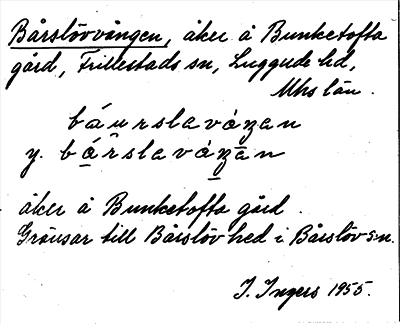 Bårslövvången, åker å Bunketofta
gård, Frillestads sn, Luggude hd,
Mhs län.
báurslaváŋan
y. bá̂rslaváŋan
åker å Bunketofta gård.
Gränsar till Bårslövs hed i Bårslövs sn.
I. Ingers 1955.